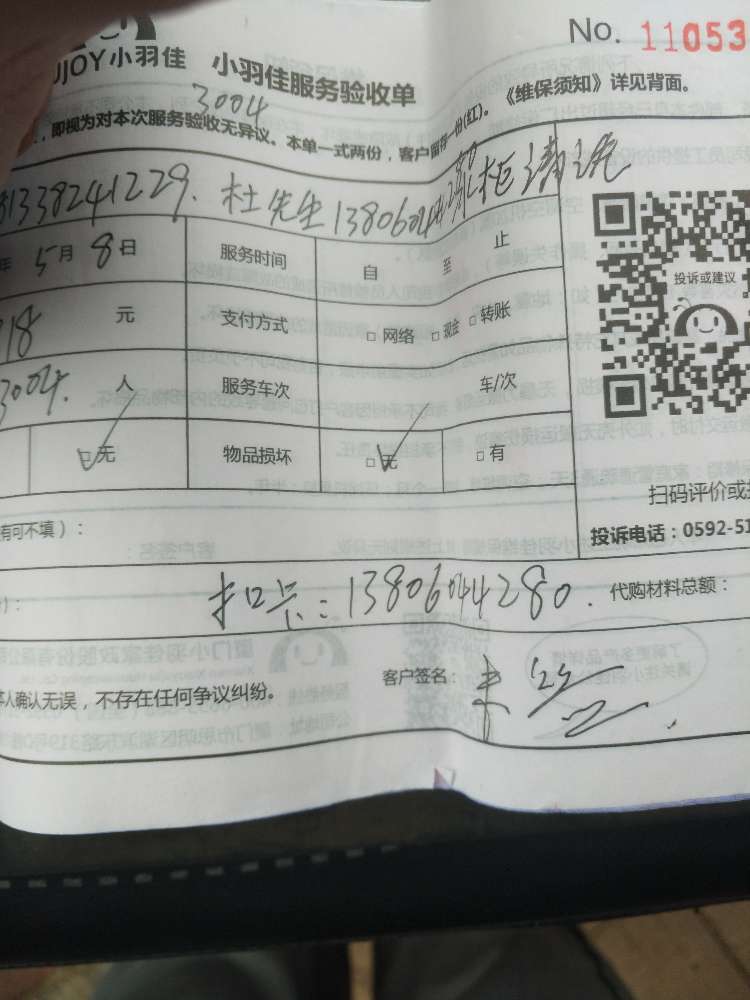 No. 11053
UJOY小羽佳 小羽佳服务验收单
3004
，即视为对本次服务验收无异议。本单一式两份，客户留存一份(红)。《维保须知》详见背面。
1338241229. 杜先生 13806044280 冰柜清洗
年 5月 8日 服务时间 自 至 止
18 元 支付方式 □ 网络 □ 现金 □ 转账
3004. 人 服务车次 车/次
□ 无 物品损坏 □ 无 □ 有
投诉或建议
扫码评价或投
有可不填）：
投诉电话：0592-51
扣卡：13806044280. 代购材料总额：
本人确认无误，不存在任何争议纠纷。
客户签名：